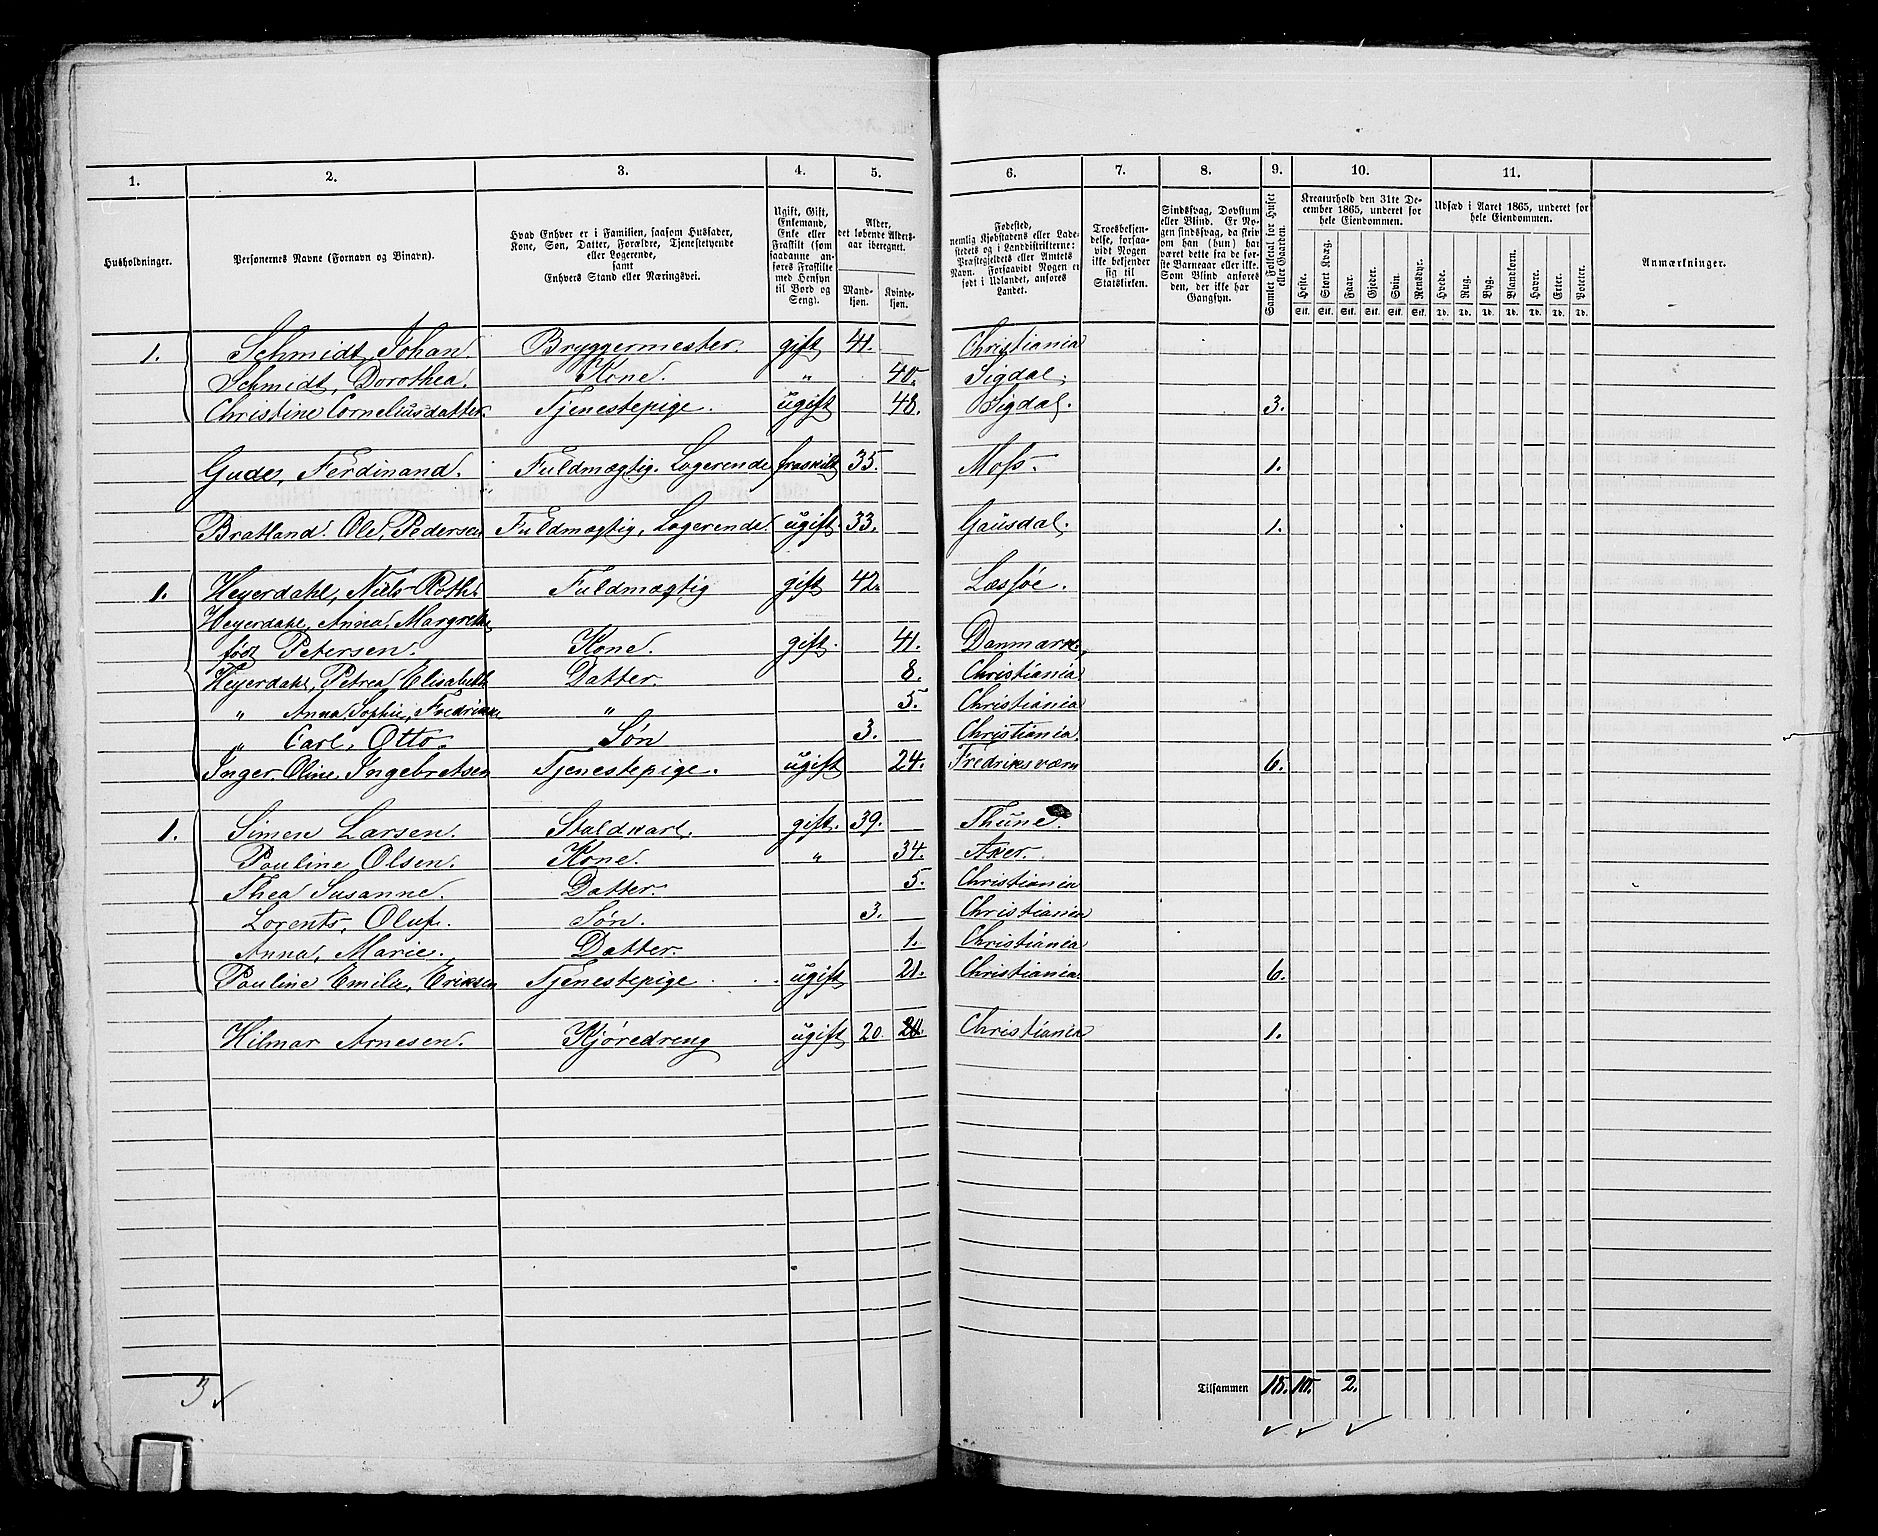 1. 2. 3. 4. 5. 6. 7. 8. 9. 10. 11.
Husholdninger.
Personernes Navne (Fornavn og Binavn).
Hvad Enhver er i Familien, saasom Husfader,
Kone, Søn, Datter, Forældre, Tjenestetyende
eller Logerende,
samt
Enhvers Stand eller Næringsvei.
Ugift, Gift,
Enkemand,
Enke eller
Fraskilt (som
saadanne an-
føres Fraskilte
med Hensyn
til Bord og
Seng).
Alder,
det løbende Alders-
aar iberegnet.
Mand-
kjøn.
Kvinde-
kjøn.
Fødested,
nemlig Kjøbstadens eller Lade-
stedets og i Landdistrikterne:
Præstegjeldets eller Amtets
Navn. Forsaavidt Nogen er
født i Udlandet, anføres
Landet.
Troesbekjen-
delse, forsaa-
vidt Nogen
ikke bekjender
sig til
Statskirken.
Sindssvag, Døvstum
eller Blind. Er No-
gen sindssvag, da skriv
om han (hun) har
været dette fra de før-
ste Barneaar eller ikke.
Som Blind anføres
den, der ikke har
Gangsyn.
Samlet Folketal for Huset
eller Gaarden.
Kreaturhold den 31te De-
cember 1865, underet for
hele Eiendommen.
Heste. Stort Kvæg. Faar. Gjeder. Svin. Rensdyr.
Stk. Stk. Stk. Stk. Stk. Stk.
Udsæd i Aaret 1865, underet for
hele Eiendommen.
Hvede. Rug. Byg. Blandkorn. Havre. Erter. Poteter.
Td. Td. Td. Td. Td. Td. Td.
Anmærkninger.
1. Schmidt, Johan. Bryggermester. gift 41. Christiania
Schmidt, Dorothea. Kone. " 40. Sigdal.
Christine Corneliusdatter. Tjenestepige. ugift 48. Sigdal. 3.
Gude, Ferdinand. Fuldmægtig. Logerende fraskilt 35. Moss. 1.
Bratland. Ole, Pedersen Fuldmægtig, Logerende. ugift. 33. Gausdal. 1.
1. Heyerdahl, Niels Roth. Fuldmægtig gift 42. Læssøe.
Heyerdahl, Anna, Margrethe
født Petersen. Kone. gift. 41. Danmark.
Heyerdahl, Petrea Elisabeth Datter. 8. Christiania
" Anna, Sophie, Fredrikke " 5. Christiania
" Carl, Otto. Søn 3. Christiania.
Inger Oline, Ingebretsen Tjenestepige. ugift 24. Fredriksværn 6.
1. Simen Larsen. Staldkarl. gift. 39. Thune.
Pauline Olsen. Kone. " 34. Aker.
Thea Susanne. Datter. 5. Christiania
Lorents, Oluf. Søn. 3. Christiania
Anna, Marie. Datter. 1. Christiania
Pauline Emilie, Eriksen Tjenestepige ugift 21. Christiania. 6.
Hilmar Arnesen. Kjøredreng ugift 20. 20. Christiania 1.
3 Tilsammen 18. 10. 2.